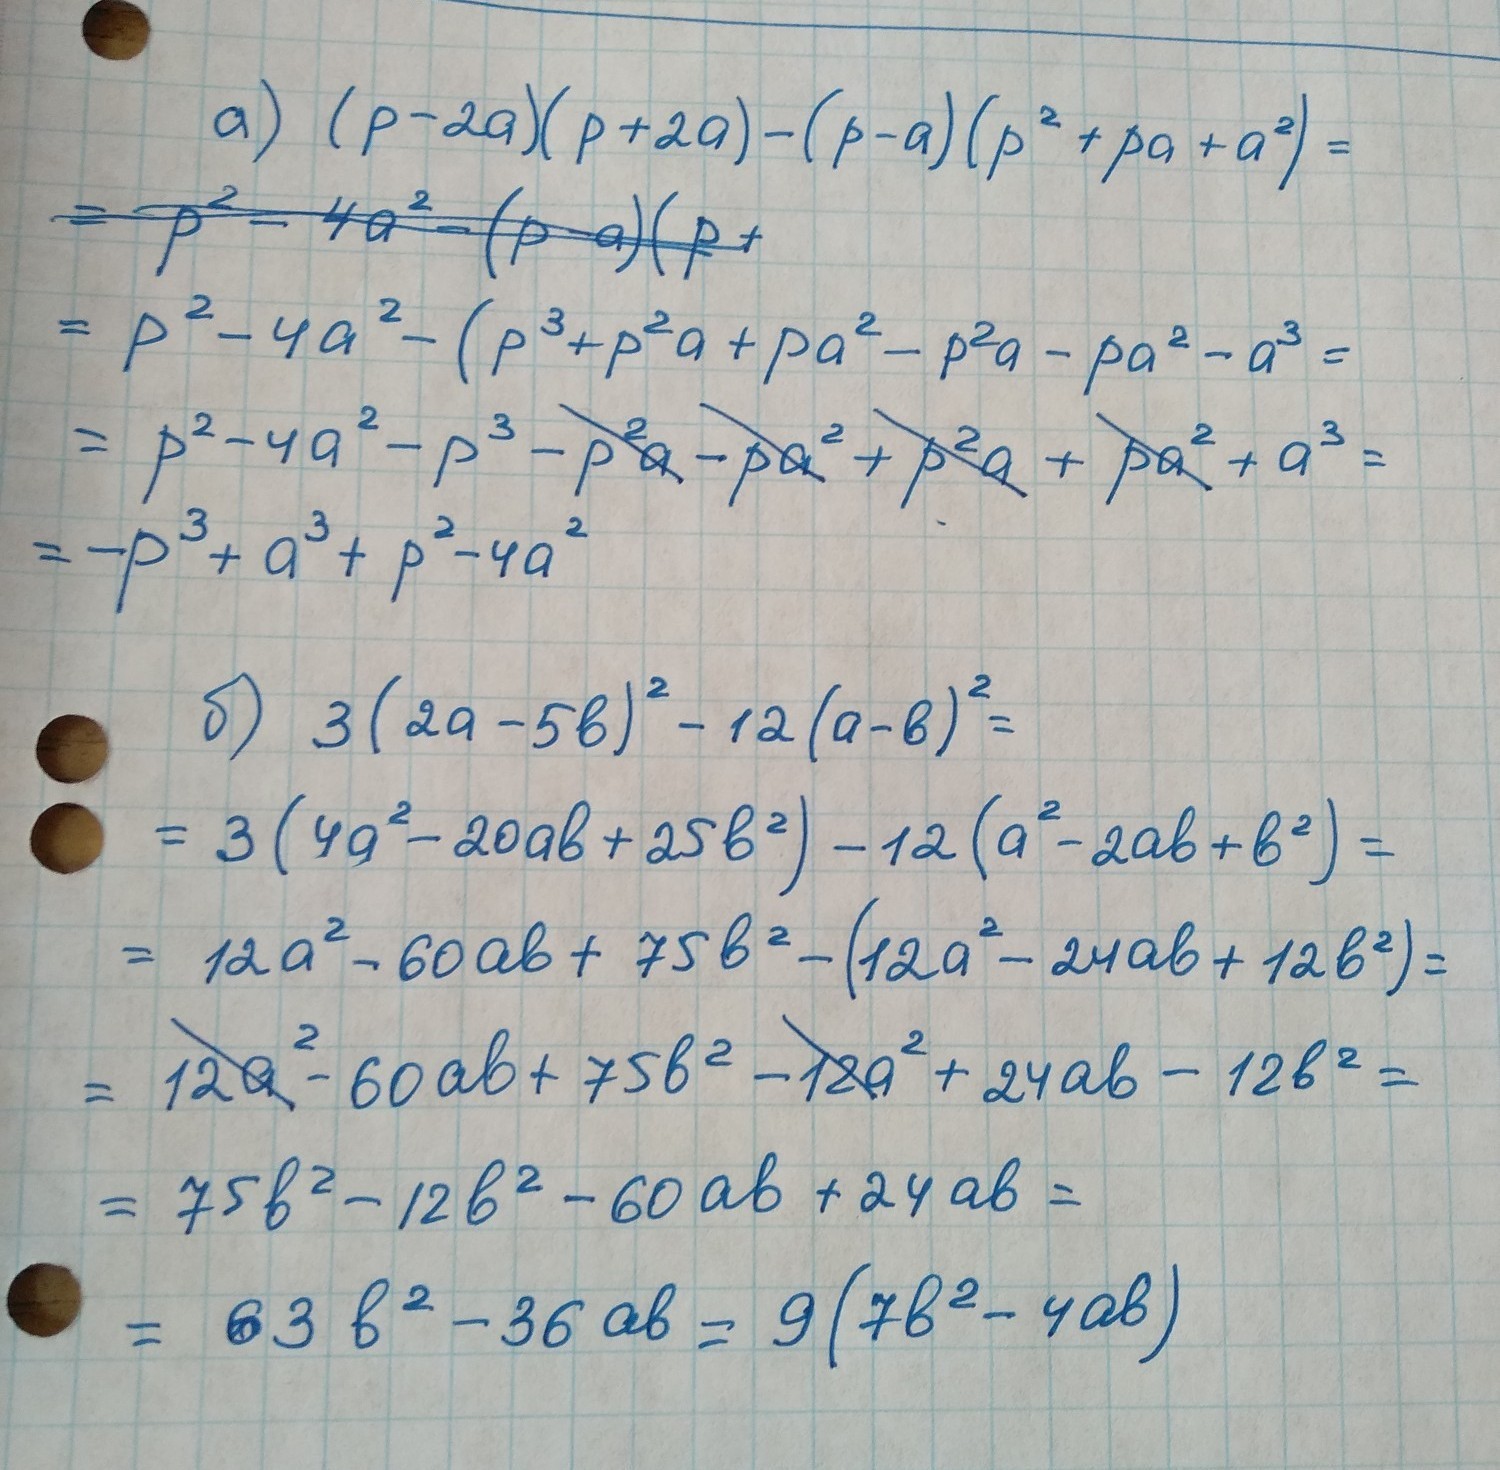 а) (p-2a)(p+2a)-(p-a)(p²+pa+a²)=
= p² - 4a² - (p-a)(p+
= p²-4a²-(p³+p²a+pa²-p²a-pa²-a³=
= p²-4a²-p³-p²a-pa²+p²a+pa²+a³=
=-p³+a³+p²-4a²
б) 3(2a-5b)²-12(a-b)²=
= 3(4a²-20ab+25b²)-12(a²-2ab+b²)=
= 12a²-60ab+75b²-(12a²-24ab+12b²)=
= 12a²-60ab+75b²-12a²+24ab-12b²=
= 75b²-12b²-60ab+24ab=
= 63b²-36ab=9(7b²-4ab)